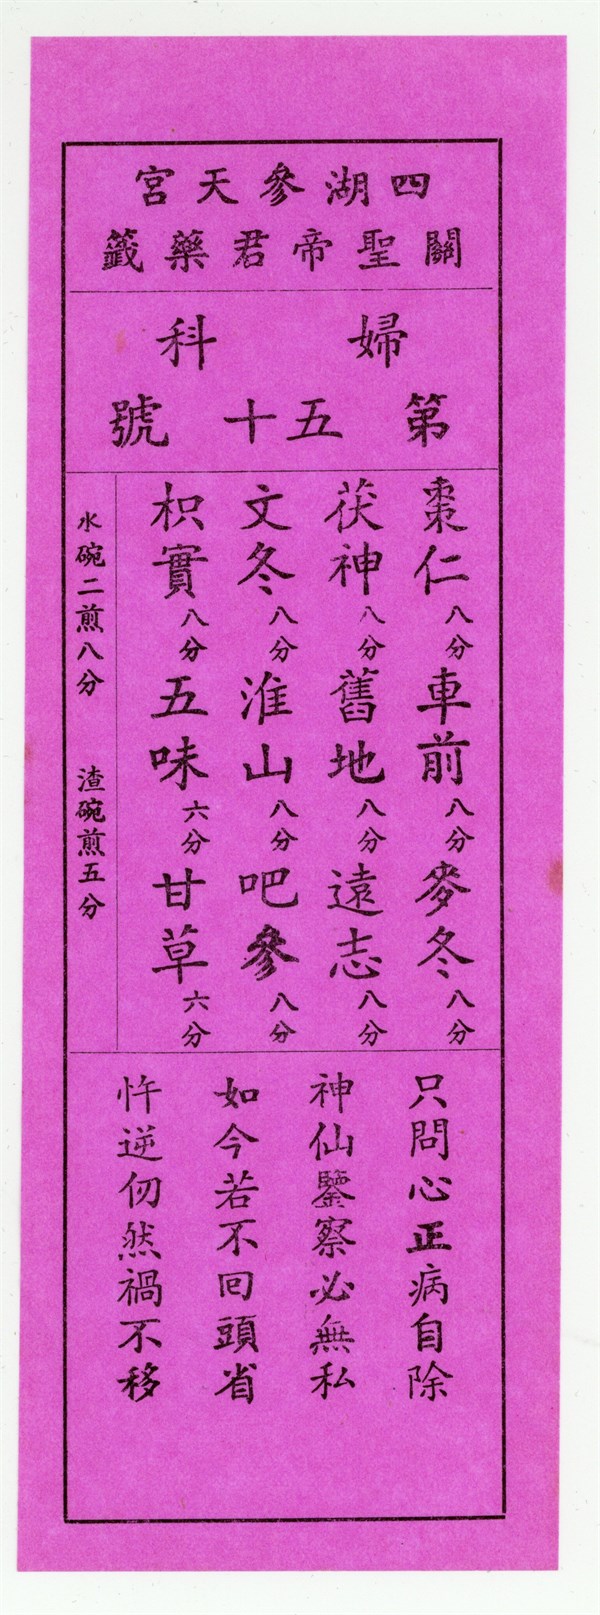 四湖參天宮
關聖帝君藥籤
婦科
第五十號
棗仁八分車前八分麥冬八分
茯神八分舊地八分遠志八分
文冬八分淮山八分吧參八分
枳實八分五味六分甘草六分
水碗二煎八分 渣碗煎五分
只問心正病自除
神仙鑒察必無私
如今若不回頭省
忤逆仞然禍不移